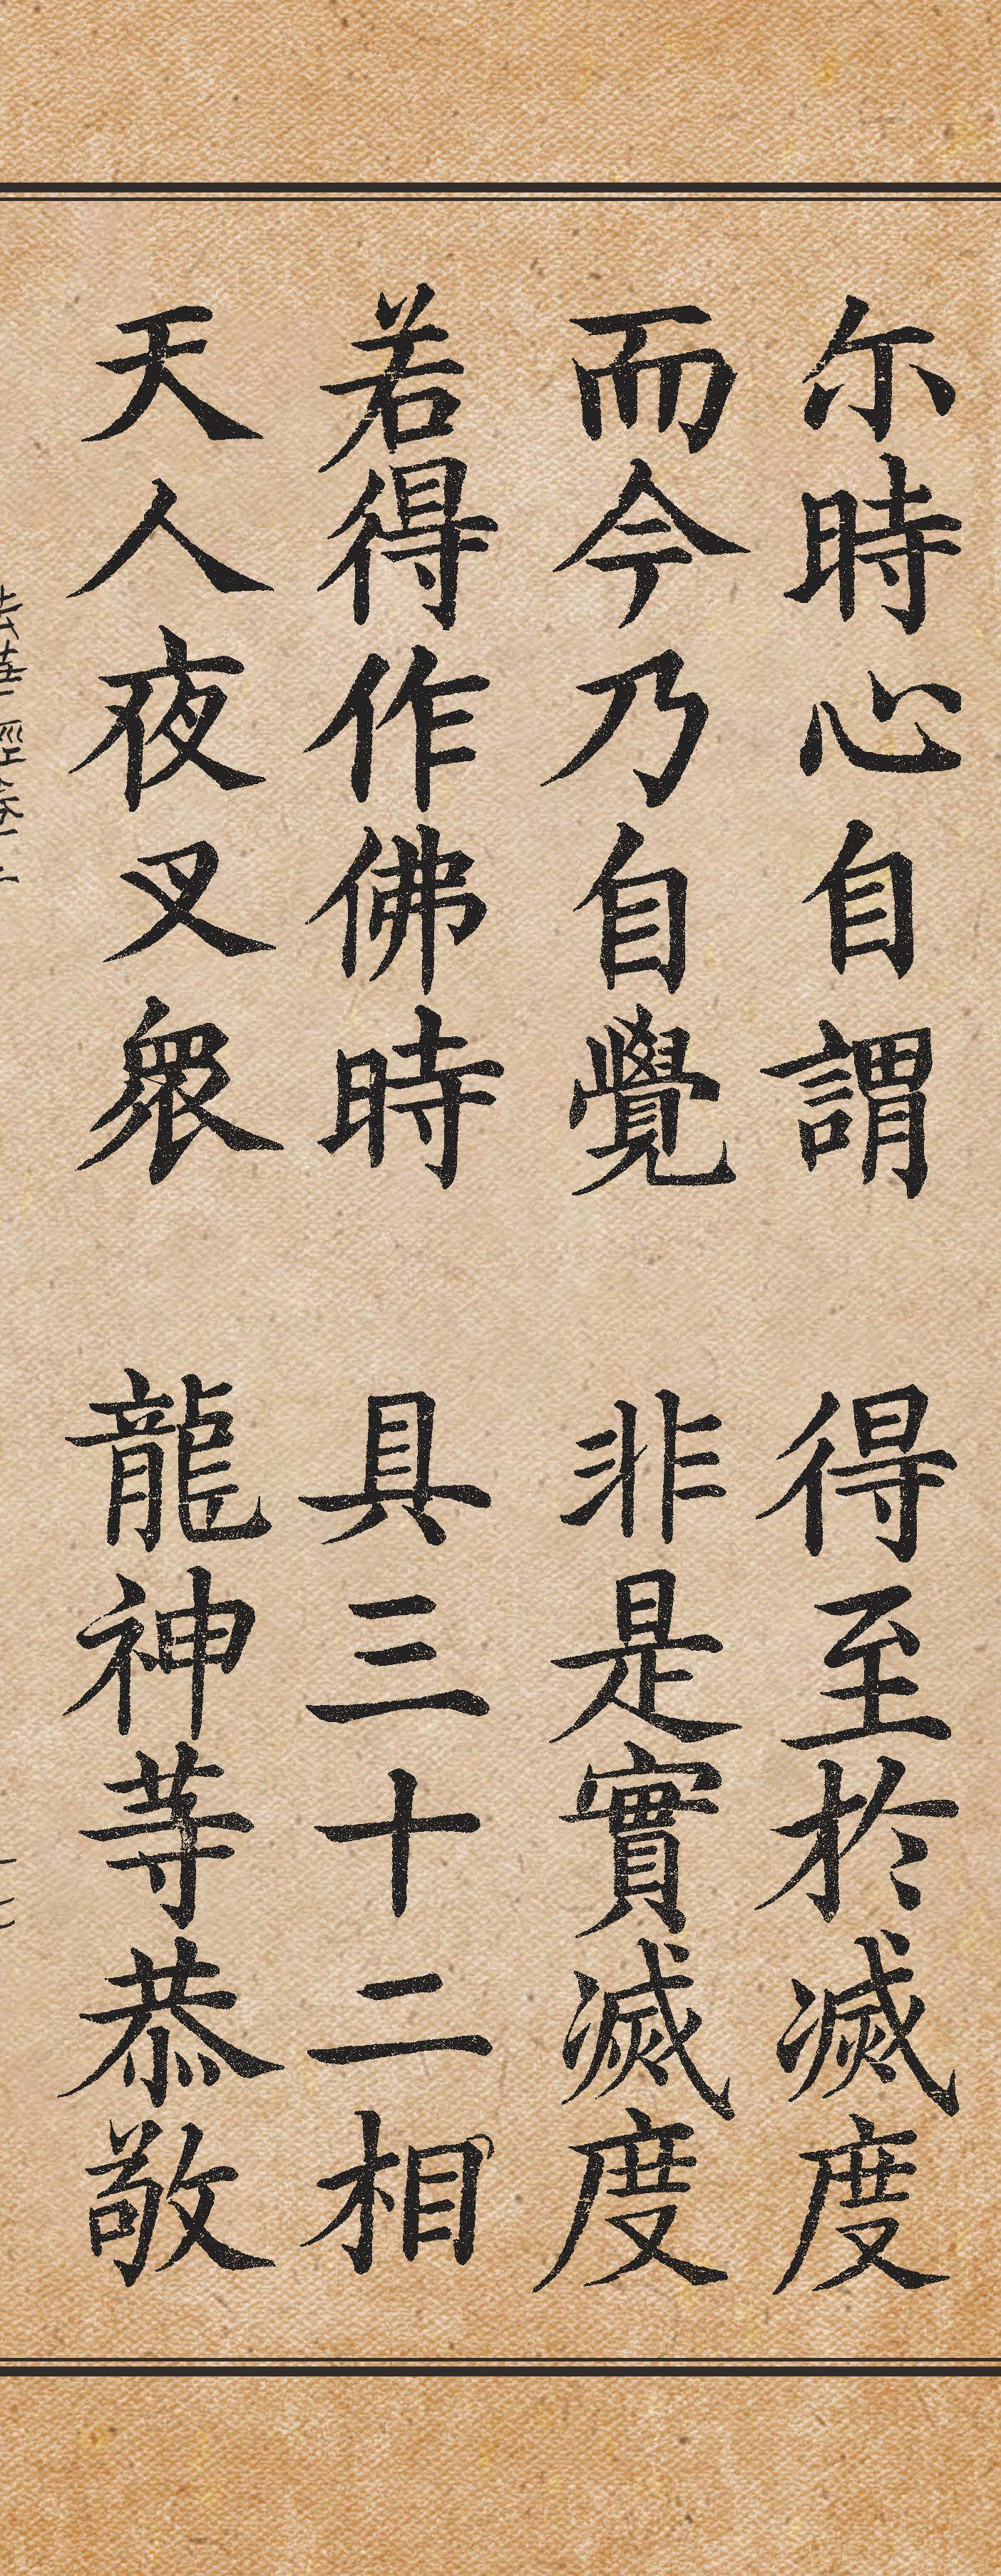 尓時心自謂　得至於滅度
而今乃自覺　非是實滅度
若得作佛時　具三十二相
天人夜叉衆　龍神等恭敬